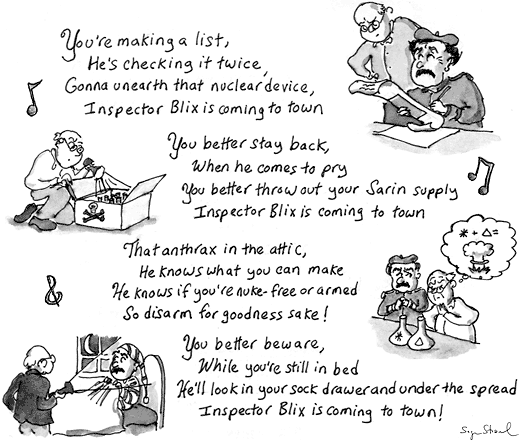 You're making a list,
He's checking it twice,
Gonna unearth that nuclear device,
Inspector Blix is coming to town
You better stay back,
When he comes to pry
You better throw out your Sarin supply
Inspector Blix is coming to town
* + △ =
That anthrax in the attic,
He knows what you can make
He knows if you're nuke-free or armed
So disarm for goodness sake!
You better beware,
While you're still in bed
He'll look in your sock drawer and under the spread
Inspector Blix is coming to town!